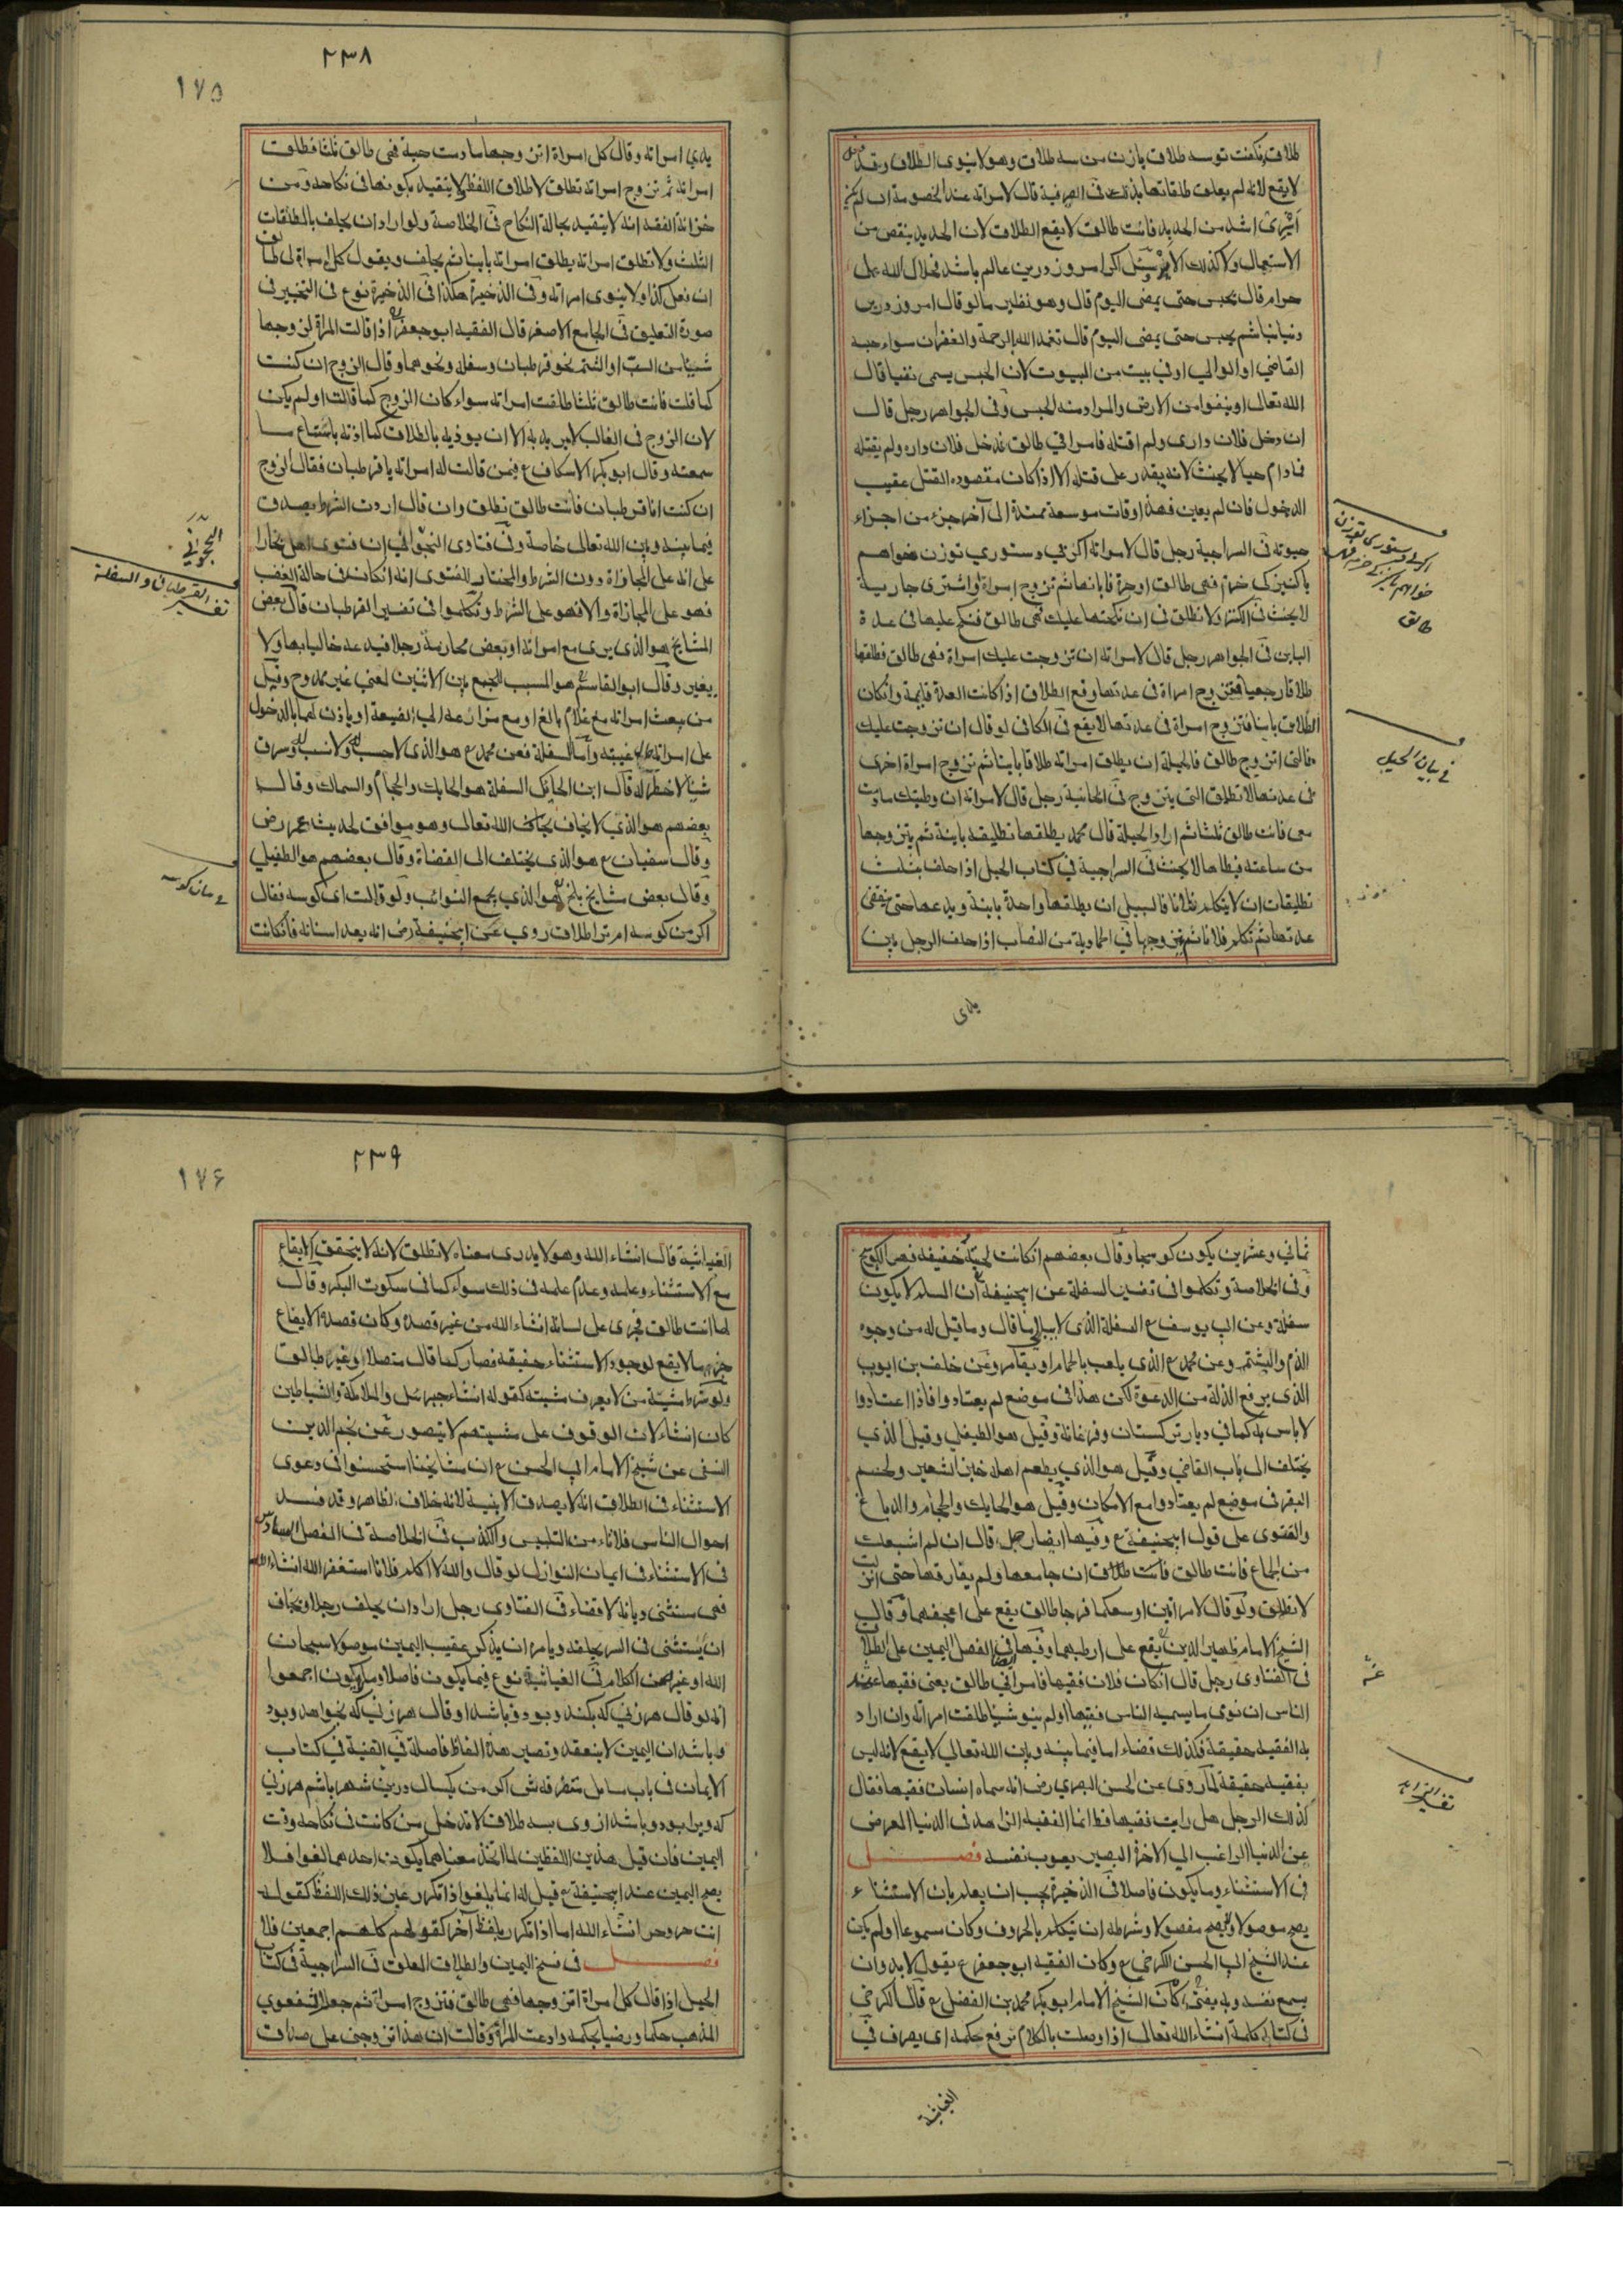 طلاق نكفت توسه طلاق بازن من سه طلاق وهو لا ينوى الطلاق وقد قيل
لا يقع لانه لم يعلق طلاقتها بذلك فى الصرفية قال لامراته عند الخصومة ان لم يكن
ايرى اشد من الحديد فانت طالق لا يقع الطلاق لان الحديد ينقص من
الاستعمال ولا كذلك الاير سئل اكر امروز درين عالم باشد فحلال الله عليه
حرام قال يحبس حتى يمضى اليوم قال وهو نظير ما لو قال امروز درين
دنيا نباشم يحبس حتى يمضى اليوم قال تغمده الله بالرحمة والغفران سواء حبسه
القاضي او الوالي او في بيت من البيوت لان الحبس يسمى نفيا قال
الله تعالى او ينفوا من الارض والمراد منه الحبس وفى الجواهر رجل قال
ان دخل فلان دارى ولم اقتله فامراتي طالق فدخل فلان داره ولم يقتله
فمادام حيا لا يحنث لانه يقدر على قتله الا اذا كان مقصوده القتل عقيب
الدخول فان لم يعين فهذا وقات موسعة ممتدة الى آخر جزء من اجزاء
حيوته فى السراجية رجل قال لامراته اكر بي دستوري توزن خواهم
يا كنيزكى خرم فهى طالق او حرة فابانها ثم تزوج امراة واشترى جارية
لا يحنث فى الكنز ولا تطلق فى ان نكحتها عليك فهى طالق فنكح عليها فى عدة
الباين فى الجواهر رجل قال لامراته ان تزوجت عليك امراة فهى طالق فطلقها
طلاقا رجعيا فتزوج امراة فى عدتها وقع الطلاق اذا كانت العدة قايمة وان كان
الطلاق باينا فتزوج امراة فى عدتها لا يقع فى الكافى لو قال ان تزوجت عليك
فالتى اتزوج طالق فالحيلة ان يطلق امراته طلاقا باينا ثم تزوج امراة اخرى
فى عدتها لا تطلق التى يتزوج فى الخانية رجل قال لامراته ان وطيتك مادمت
معى فانت طالق ثلثا ثم اراد الحيلة قال محمد يطلقها تطليقة باينة ثم يتزوجها
من ساعته فيطاها لا يحنث فى السراجية فى كتاب الحيل اذا حلف بثلث
تطليقات ان لا يتكلم فلانا فالسبيل ان يطلقها واحدة باينة ويدعها حتى ينقضى
عدتها ثم تكلم فلانا ثم يتزوجها في الحاوية من النصاب اذا حلف الرجل باين
يدى
اكر بي دستورى توزن
خواهم يا كنيزكى خرم فهى
طالق
فى بيان الحيل
٢٣٨
١٧٥
يدي امراته وقال كل امراة اتزوجها مادمت حية فهى طالق ثلثا فطلقت
امراته ثم تزوج امراته تطلق لاطلاق اللفظ ولا يتقيد بكونها فى نكاحه ومن
خزانة الفقه انه لا يتقيد بحالة النكاح فى الخلاصة ولو اراد ان يحلف بالطلقات
الثلث ولا تطلق امراته يطلق امراته باينا ثم يحلف ويقول كل امراة لى طالق
ان فعل كذا ولا ينوى امراته وفى الذخيرة هكذا فى الذخيرة نوع فى التخيير فى
صورة التعليق فى الجامع الاصغر قال الفقيه ابو جعفر اذا قالت المراة لزوجها
شيئا من السب او الشتم نحو قرطبان وسفلة ونحوهما وقال الزوج ان كنت
كما قلت فانت طالق ثلثا طلقت امراته سواء كان الزوج كما قالت او لم يكن
لان الزوج فى الغالب لا يريد به الا ان يوذيه بالطلاق كما اذته باسماع ما
سمعته وقال ابو بكر الاسكاف ع فيمن قالت له امراته يا قرطبان فقال الزوج
ان كنت انا قرطبان فانت طالق تطلق وان قال اردت الشرط يصدق
فيما بينه وبين الله تعالى خاصة وفى فتاوى النجواني ان فتوى اهل بخارا
على انه على المجازاة دون الشرط والمختار للفتوى انه ان كان فى حالة الغضب
فهو على المجازاة والا فهو على الشرط وتكلموا فى تفسير القرطبان قال بعض
المشايخ هو الذى يرى مع امراته او بعض محارمه رجلا فيدعه خاليا بها ولا
يغير وقال ابو القاسم هو المسبب للجمع بين الاثنين لمعنى غير ممدوح وقيل
من يبعث امراته مع غلام بالغ او مع مزارعه الى الضيعة او ياذن لهما بالدخول
على امراته عند غيبته واما السفلة فعن محمد ع هو الذى لا حسب له ولا نسب له وسرق
شيئا لا خطر له قال ابن الحائك السفلة هو الحايك والحجام والسماك وقال
بعضهم هو الذي لا يخاف الله تعالى وهو موافق لحديث عمر رض
وقال سفيان ع هو الذى يختلف الى القضاة وقال بعضهم هو الطفيلي
وقال بعض مشايخ بلخ هو الذي يجمع النوائب ولو قالت اى كوسه فقال
اكر من كوسه ام ترا طلاق روي عن ابى حنيفة رض انه يعد اسنانه فان كانت
النجوانى
تفسير القرطبان والسفلة
فى بيان كوسه
ثماني وعشرين يكون كوسجا وقال بعضهم ان كانت لحيته خفيفة فهو الكوسج
وفى الخلاصة وتكلموا فى تفسير السفلة عن ابى حنيفة ان المسلم لا يكون
سفلة وعن ابى يوسف ع السفلة الذى لا يبالى ما قال وما قيل له من وجوه
الذم والشتم وعن محمد ع الذى يلعب بالحمام او يقامر وعن خلف بن ايوب
الذى يرفع الذلة من الدعوة لكن هذا فى موضع لم يعتادوا فاذا اعتادوا
لا باس به كما في ديار تركستان وفرغانة وقيل هو الطفيلي وقيل الذي
يختلف الى باب القاضي وقيل هو الذي يطعم اهله خبز الشعير ولحم
البقر فى موضع لم يعتادوا مع الامكان وقيل هو الحايك والحجام والدباغ
والفتوى على قول ابى حنيفة ع وفيها ايضا رجل قال ان لم اشبعك
من الجماع فانت طالق فانت طالق ان جامعها ولم يفارقها حتى انزلت
لا تطلق ولو قال لامراتين اوسعكما فرجا طالق يقع على اعجفهما وقال
الشيخ الامام ظهير الدين ع يقع على ارطبهما وفيها ايضا فى الفصل اليمين على الطلاق
فى الفتاوى رجل قال ان كان فلان فقيها فامراتي طالق يعنى فقيها عند
الناس ان نوى ما يسميه الناس فقيها او لم ينو شيئا طلقت امراته وان اراد
به الفقيه حقيقة فكذلك قضاء اما فيما بينه وبين الله تعالى لا يقع لانه ليس
بفقيه حقيقة لما روى عن الحسن البصري رض انه سماه انسان فقيها فقال
كذلك الرجل هل رايت فقيها قط انما الفقيه الزاهد فى الدنيا المعرض
عن الدنيا الراغب الي الاخرة البصير بعيوب نفسه فصل
فى الاستثناء وما يكون فاصلا فى الذخيرة يجب ان يعلم بان الاستثناء
يصح موصولا ولا يصح مفصولا وشرطه ان يتكلم بالحروف وكان مسموعا او لم يكن
عند الشيخ ابي الحسن الكرخي ع وكان الفقيه ابو جعفر ع يقول لا بد وان
يسمع نفسه وبه يفتى كان الشيخ الامام ابو بكر محمد بن الفضل ع قال الكرخي
فى كتابه كلمة انشاء الله تعالى اذا وصلت بالكلام ترفع حكمه اى يصرف في
الغياثية
تفسير الزاهد
٢٣٩
١٧۶
الغياثية قال انشاء الله وهو لا يدرى معناه لا تطلق لانه لا يتحقق الايقاع
مع الاستثناء وعلمه وعدم علمه فى ذلك سواء كما فى سكوت البكر وقال
لها انت طالق فجرى على لسانه انشاء الله من غير قصده وكان قصده الايقاع
لا يقع لوجود الاستثناء حقيقة فصار كما قال متصلا او غير طالق
ولو شرط مشية من لا يعرف مشيته كقوله انشاء جبرئيل والملائكة والشياطين
كان انشاء لان الوقوف على مشيتهم لا يتصور عن نجم الدين
النسفى عن شيخ الامام ابى الحسن ع ان مشايخنا استحسنوا فى دعوى
الاستثناء فى الطلاق انه لا يصدق الا ببينة لانه خلاف الظاهر وقد فسد
احوال الناس فلا تامن من التلبيس والكذب فى الخلاصة فى الفصل السادس
فى الاستثناء فى ايمان النوازل لو قال والله لا اكلم فلانا استغفر الله انشاء الله
فهى مستثنى ديانة لا قضاء فى الفتاوى رجل اراد ان يحلف رجلا ويخاف
ان يستثنى فى السر يحلفه ويامر ان يذكر عقيب اليمين موصولا سبحان
الله او غيره من الكلام فى الغياثية نوع فيما يكون فاصلا وما لا يكون اجمعوا
انه لو قال هرزنى كه بكند وبود وباشد او قال هرزني كه بخواهد وبود
وباشد ان اليمين لا ينعقد وتصير هذه الفاظ فاصلة فى القنية في كتاب
الايمان فى باب مسايل متفرقه ش اكر من يكسال درين شهر باشم هرزني
كه ويرا بود وباشد ازوى بسه طلاق لا تدخل من كانت فى نكاحه وقت
اليمين فان قيل هذين اللفظين لما اتحد معناهما يكون احدهما لغوا فلا
يصح اليمين عند ابى حنيفة ع قيل له انما يلغوا اذا تكرر عين ذلك اللفظ كقوله
انت حر وحر انشاء الله اما اذا تكرر بلفظ آخر كقولهم كلهم اجمعين فلا
فصل فى فسخ اليمين والطلاق المعلق فى السراجية فى كتاب
الحيل اذا قال كل امراة اتزوجها فهى طالق فتزوج امراة ثم جعلا شفعوي
المذهب حكما ورضيا بحكمه وادعت المراة وقالت ان هذا تزوجنى على صداق